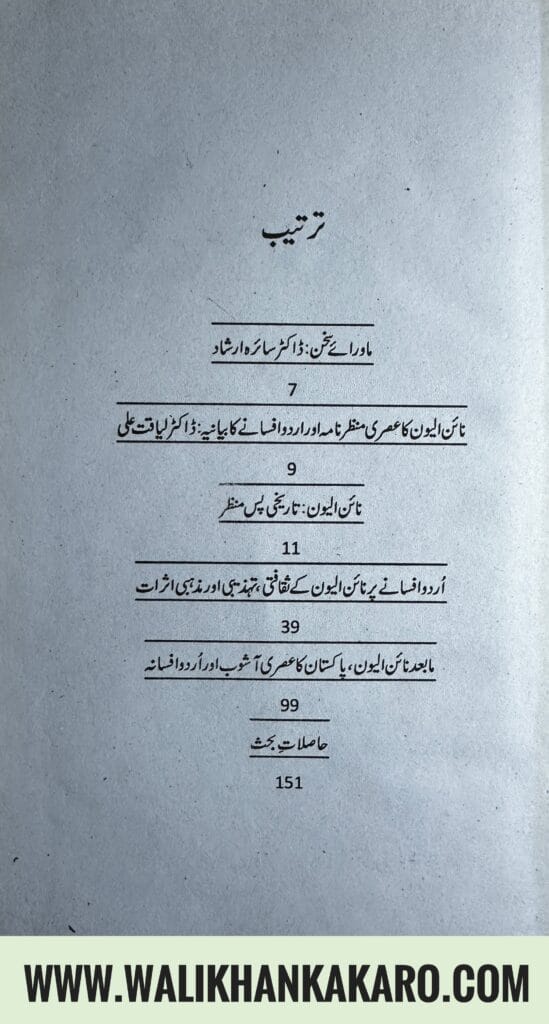 ترتیب
ماورائے سخن: ڈاکٹر سائرہ ارشاد
7
نائن الیون کا عصری منظر نامہ اور اردو افسانے کا بیانیہ: ڈاکٹر لیاقت علی
9
نائن الیون: تاریخی پس منظر
11
اُردو افسانے پر نائن الیون کے ثقافتی، تہذیبی اور مذہبی اثرات
39
مابعد نائن الیون، پاکستان کا عصری آشوب اور اُردو افسانہ
99
حاصلاتِ بحث
151
WWW.WALIKHANKAKARO.COM